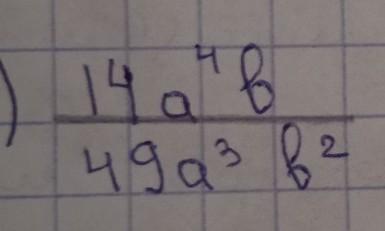 ) 14a⁴b
49a³ b²